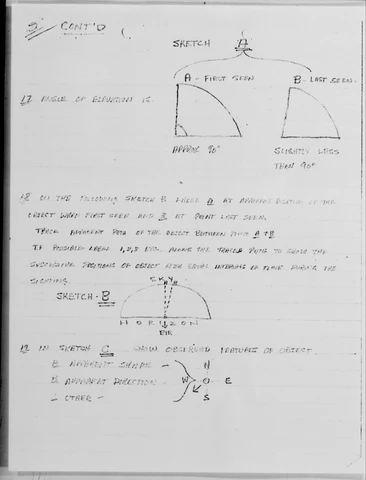 CONT'D
SKETCH A
A - FIRST SEEN
B - LAST SEEN.
17 ANGLE OF ELEVATION IS
APPROX 90°
SLIGHTLY LESS
THAN 90°
18 ON THE FOLLOWING SKETCH B LABEL A AT APPARENT POSITION OF THE
OBJECT WHEN FIRST SEEN AND B AT POINT LAST SEEN.
APPARENT PATH OF THE OBJECT BETWEEN A & B
IF POSSIBLE LABEL 1,2,3 ALONG THE TRACED PATH TO SHOW THE
SUCCESSIVE POSITIONS OF OBJECT FOR EQUAL INTERVALS OF TIME DURING THE
SIGHTING.
SKETCH - B
SKY
HORIZON
19 IN SKETCH C SHOW OBSERVED FEATURES OF OBJECT.
APPARENT SHAPE -
APPARENT DIRECTION -
OTHER -
N
W O E
S